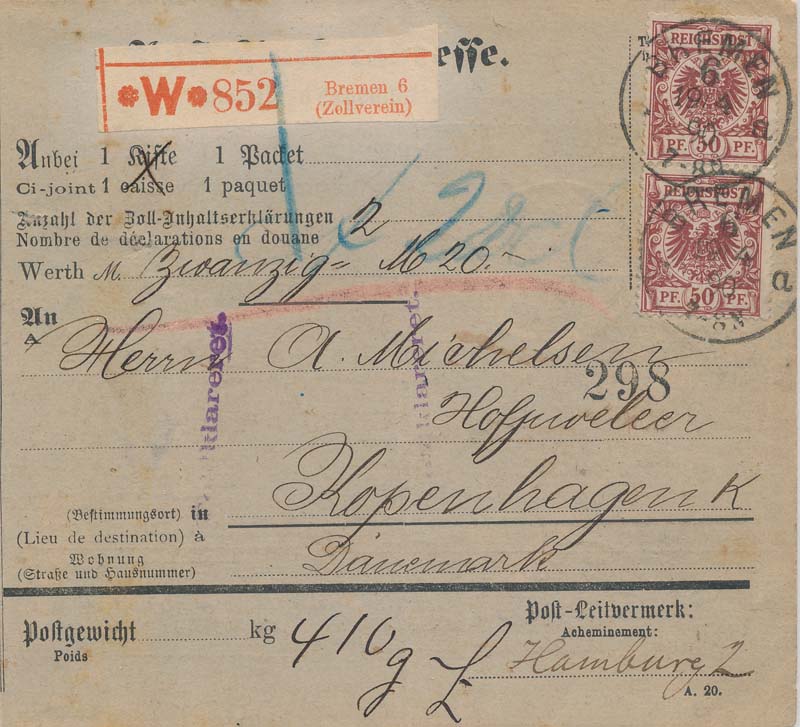 esse.
W 852 Bremen 6
(Zollverein)
REICHSPOST
PF. 50 PF.
BREMEN
6
a
REICHSPOST
PF. 50 PF.
BREMEN
6
a
Anbei 1 Kiste 1 Packet
Ci-joint 1 caisse 1 paquet
Anzahl der Zoll-Inhaltserklärungen 2
Nombre de déclarations en douane
Werth M. Zwanzig = M 20.-
An
A
Herrn A. Michelsen
298
Hofjuwelier
Kopenhagen K
(Bestimmungsort) in
(Lieu de destination) à
Dänemark
Wohnung
(Straße und Hausnummer)
Postgewicht kg 410 g
Poids
Post-Leitvermerk:
Acheminement:
Hamburg 2
A. 20.